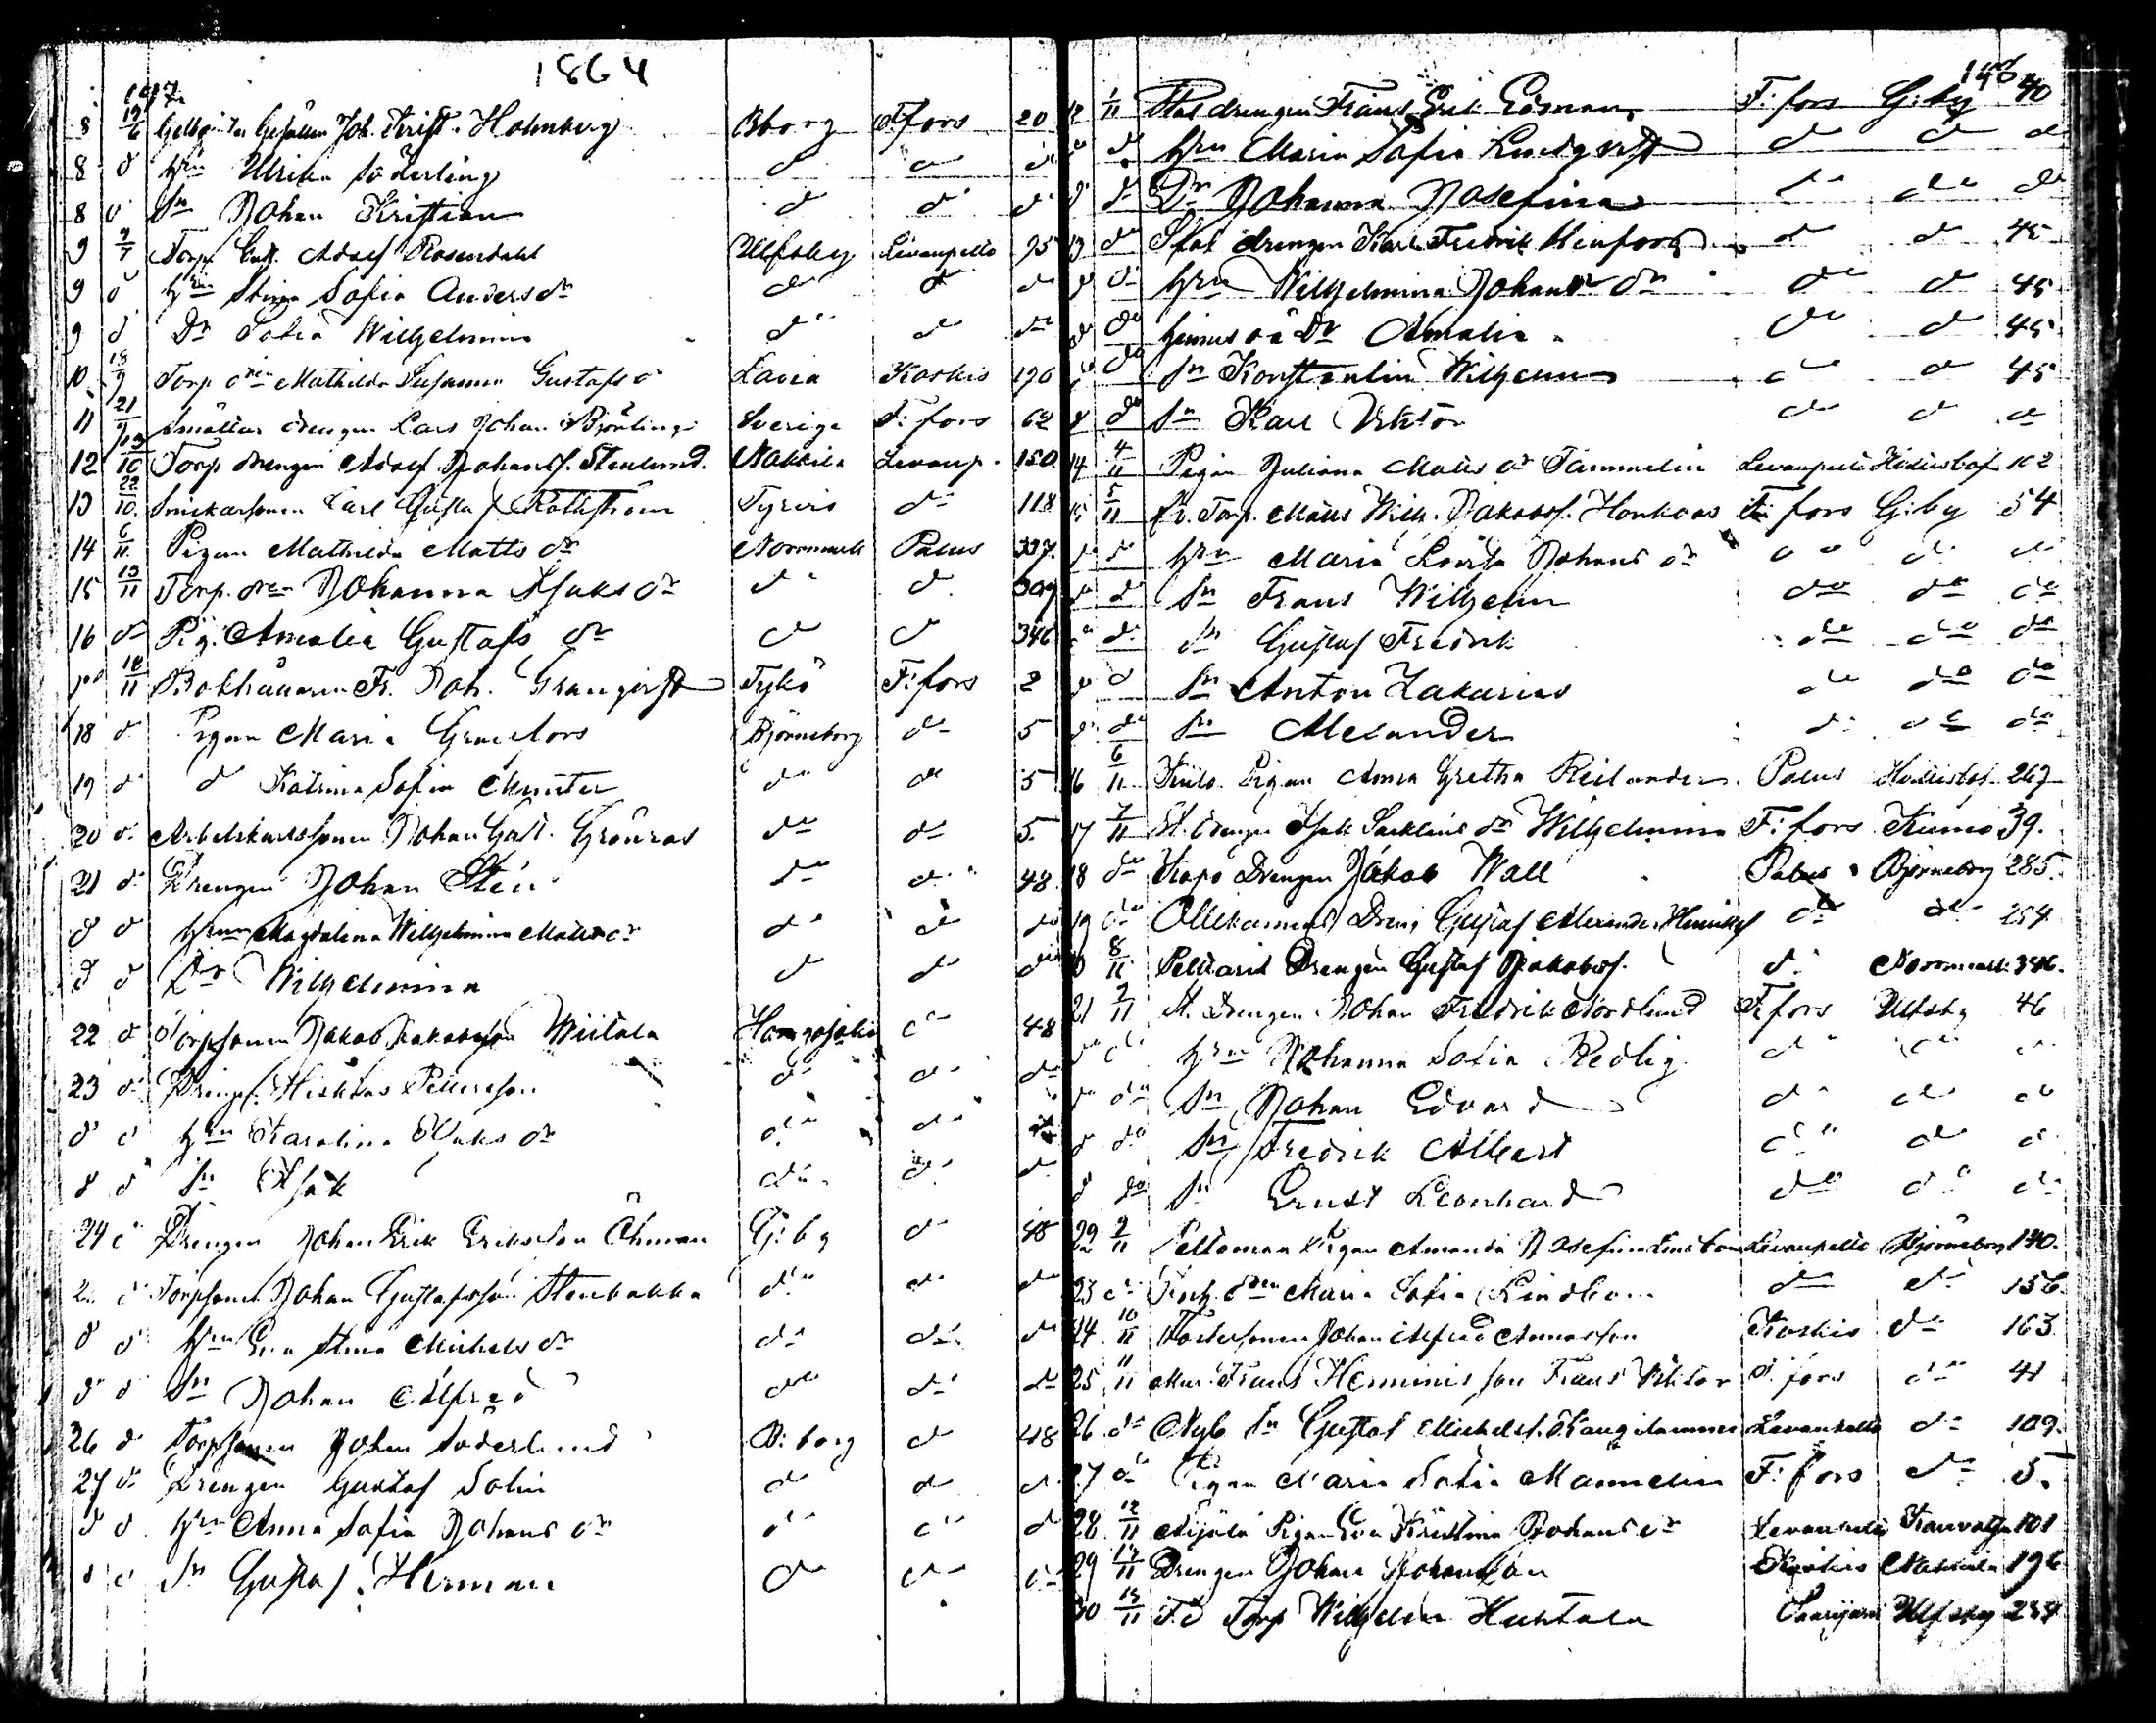 1864
8 19/6 Gelbg. Gesällen Joh. Krist. Holmberg Bborg F:fors 20
8 d Hru Ulrika Söderling d d d
8 d Sn Johan Kristian d d d
9 7/7 Torp Enk. Adolf Rosendahl Ulfsby Levanpelto 95
9 d hru Stina Sofia Anders dr d d d
9 d Dr Sofia Wilhelmina d d d
10 18/9 Torp drn Mathilda Susanna Gustafs dr Lavia Koskis 196
11 21/9 Smältar drengen Lars Johan Björling Sverige F:fors 62
12 10 Torp drengen Adolf Johanss. Stenlund Nakkila Levanp. 150
13 22/10 Snickarsonen Carl Gustaf Tyrvis d 118
14 6/11 Pigan Mathilda Matts dr Norrmark Palus 337
15 13/11 Torp. drn Johanna Isaks dr d d 309
16 d Pig. Amalia Gustafs dr d d 346
18/11 Bokhållaren Fr. Joh. Granqvist Tykö F:fors 2
18 d Pigan Maria Granfors Björneborg d 5
19 d d Katrina Sofia Munter d d 5
20 d Arbetskarlssonen Johan Gust. Grönros d d 5
21 d Drengen Johan Sten d d 48
d d hrun Magdalena Wilhelmina Matts dr d d d
d d Dr Wilhelmina d d d
22 d Torpsonen Jakob Jakobsson Wiitala Honkojoki d 48
23 d Drengen Hiskias Pettersson d d d
d d hru Karolina Isaks dr d d
d d Sn Isak d d d
24 d Drengen Johan Erik Eriksson Öhman G:by d 48
d Torpsonen Johan Gustafsson Stenbakka d d d
d d hru Eva Stina Michels dr d d d
d d Sn Johan Alfred d d d
26 d Torpsonen Johan Söderlund B:borg d 48
27 d Drengen Gustaf Solin d d d
d d hru Anna Sofia Johans dr d d d
d d Sn Gustaf Herman d d d
146
12 1/11 Stat drengen Frans Erik Edman F:fors G:by 40
d d hru Maria Sofia Lindqvist d d d
d d Dr Johanna Josefina d d d
13 d Stat drengen Karl Fredrik d d 45
d d hru Wilhelmina Johans dr d d 45
d d hennes oä Dr Amalia d d 45
d d Sn Konstantin Wilhelm d d 45
d d Sn Karl Viktor d d d
14 4/11 Pigan Juliana Matts dr Tammelin Levanpelto Hvittisbof. 102
15 5/11 Fr. Torp. Matts Wilh. Jakobss. Honkoos F:fors G:by 54
d d hru Maria Lovisa Johans dr d d d
d d Sn Frans Wilhelm d d d
d d Sn Gustaf Fredrik d d d
d d Sn Anton Zakarias d d d
d d Sn Alexander d d d
16 6/11 Pigan Anna Gretha Palus Hvittisbof. 267
17 7/11 St. drengen Isak dr Wilhelmina F:fors Kumo 39
18 d Drengen Jakob Wall Palus Björneborg 285
19 d Ollikainens Dreng Gustaf Alexander d d 254
8/11 Drengen Gustaf Jakobss. d Norrmark 346
21 7/11 St. Drengen Johan Fredrik Nordlund F:fors Ulfsby 46
d d hru Johanna Sofia Redlig d d d
d d Sn Johan Edvard d d d
d d Sn Fredrik Albert d d d
d d Sn Ernst Leonhard d d d
22 9/11 Peltoman Pigan Amanda Josefina Levanpelto Björneborg 140
23 d Torp. drn Maria Sofia Lindbom d d 156
24 10/11 Fostersonen Johan Alfred Koskis d 163
25 11/11 Mur. Frans Herminis son Frans Viktor F:fors d 41
26 d Nyb. Sn Gustaf Michelss. Levanpelto d 109
27 d Pigan Maria Sofia Mannelin F:fors d 5
28 12/11 Pigan Eva Kristina Johans dr Levanpelto Kauvatsa 101
29 Drengen Johan Johansson Koskis Nakkila 196
30 15/11 F.d Torp Wilhelm Huhtala Ulfsby